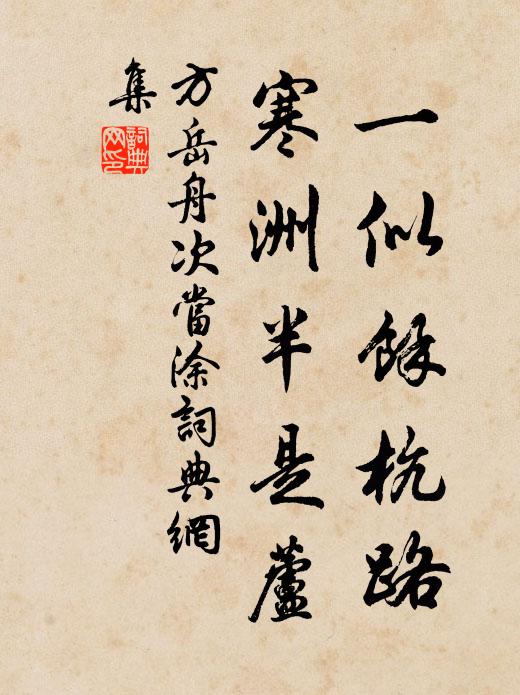 一似餘杭路
寒洲半是蘆
方岳舟次當涂詞典網
集
詞典
网印